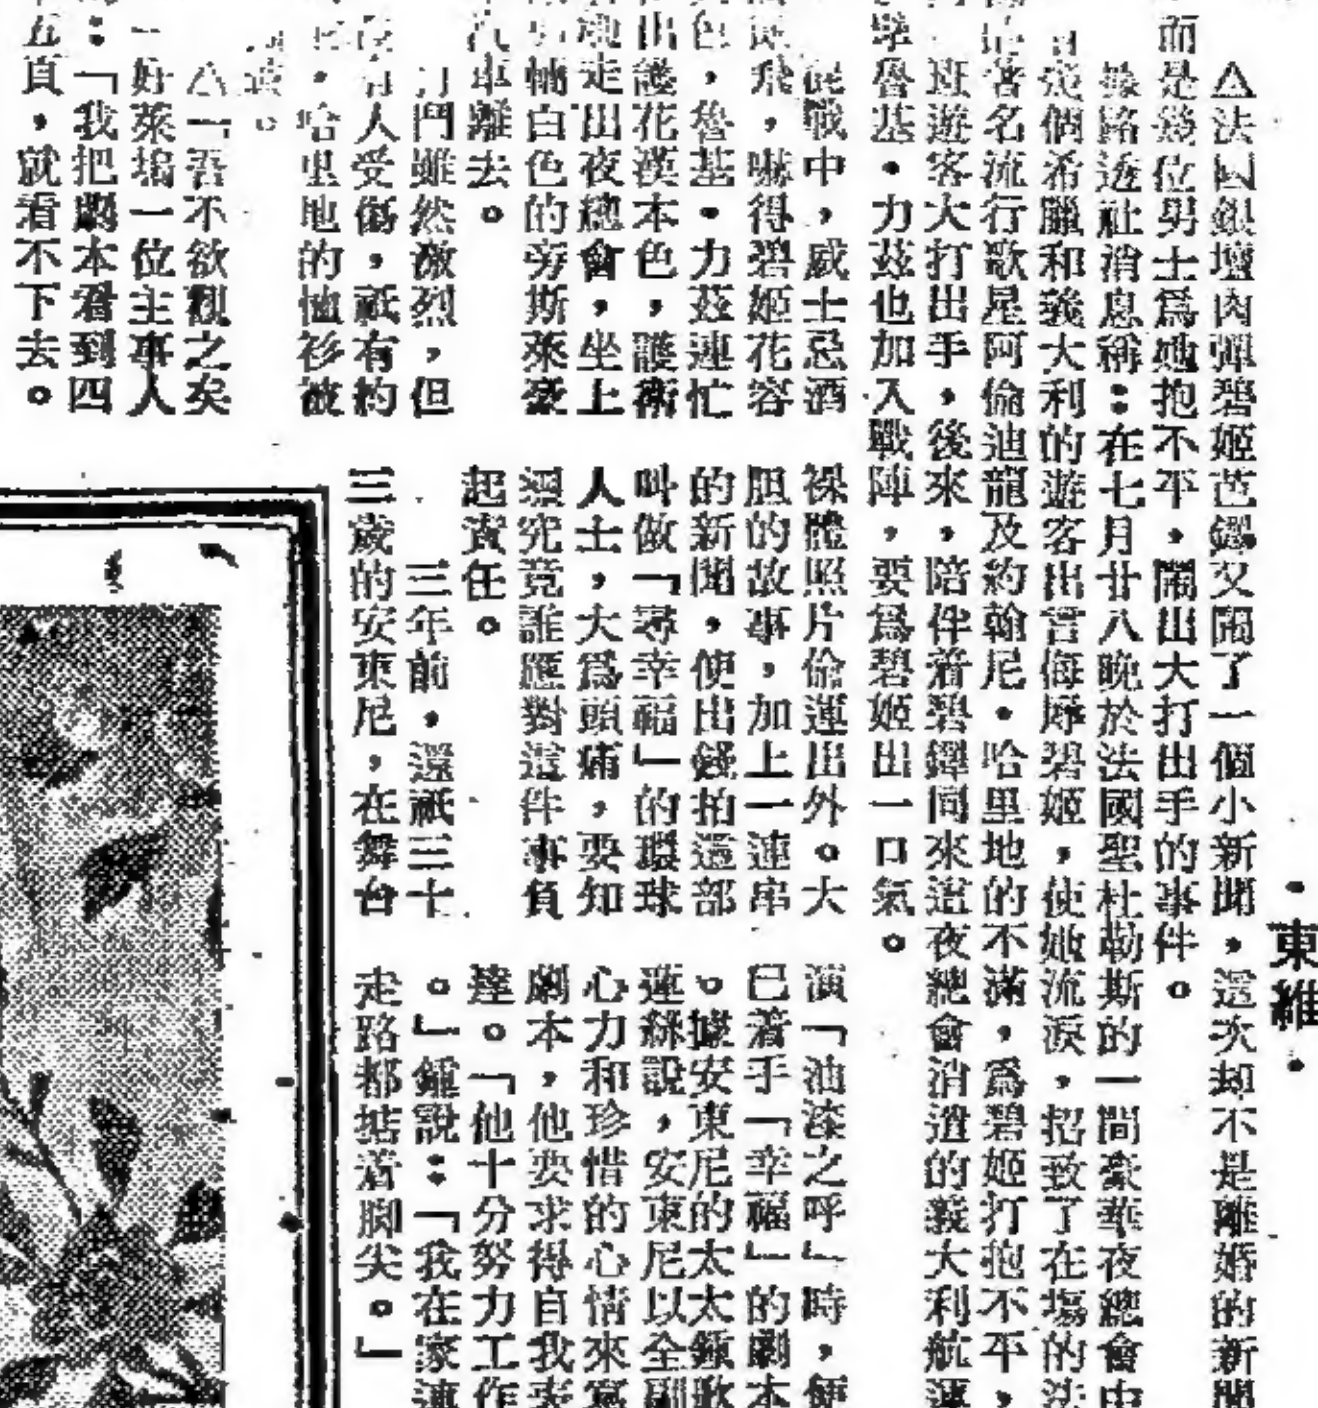 ・東維・
△法國銀壇肉彈碧姬芭鐸又鬧了一個小新聞，這次却不是離婚的新聞
而是幾位男士爲她抱不平，鬧出大打出手的事件。
據路透社消息稱：在七月廿八晚於法國聖杜勒斯的一間豪華夜總會中
個希臘和義大利的遊客出言侮辱碧姬，使她流淚，招致了在塲的法
著名流行歌星阿倫迪龍及約翰尼・哈里地的不滿，爲碧姬打抱不平，
班遊客大打出手，後來，陪伴着碧鐸同來這夜總會消遣的義大利航運
魯基・力茲也加入戰陣，要爲碧姬出一口氣。
混戰中，威士忌酒
飛，嚇得碧姬花容
色，魯基・力茲連忙
出護花漢本色，護衛
走出夜總會，坐上
輛白色的旁斯萊豪
汽車離去。
打鬥雖然激烈，但
有人受傷，祇有約
・哈里地的恤衫被
。
△「吾不欲觀之矣
好萊塢一位主事人
：「我把劇本看到四
五頁，就看不下去。
裸體照片偷運出外。大
胆的故事，加上一連串
的新聞，使出錢拍這部
叫做「尋幸福」的環球
人士，大爲頭痛，要知
究竟誰應對這件事負
起責任。
三年前，還祇三十
三歲的安東尼，在舞台
演「油漆之呼」時，便
已着手「幸福」的劇本
。據安東尼的太太鍾歌
連絲說，安東尼以全副
心力和珍惜的心情來寫
劇本，他要求得自我表
達。「他十分努力工作
。」鍾說：「我在家連
走路都掂着脚尖。」